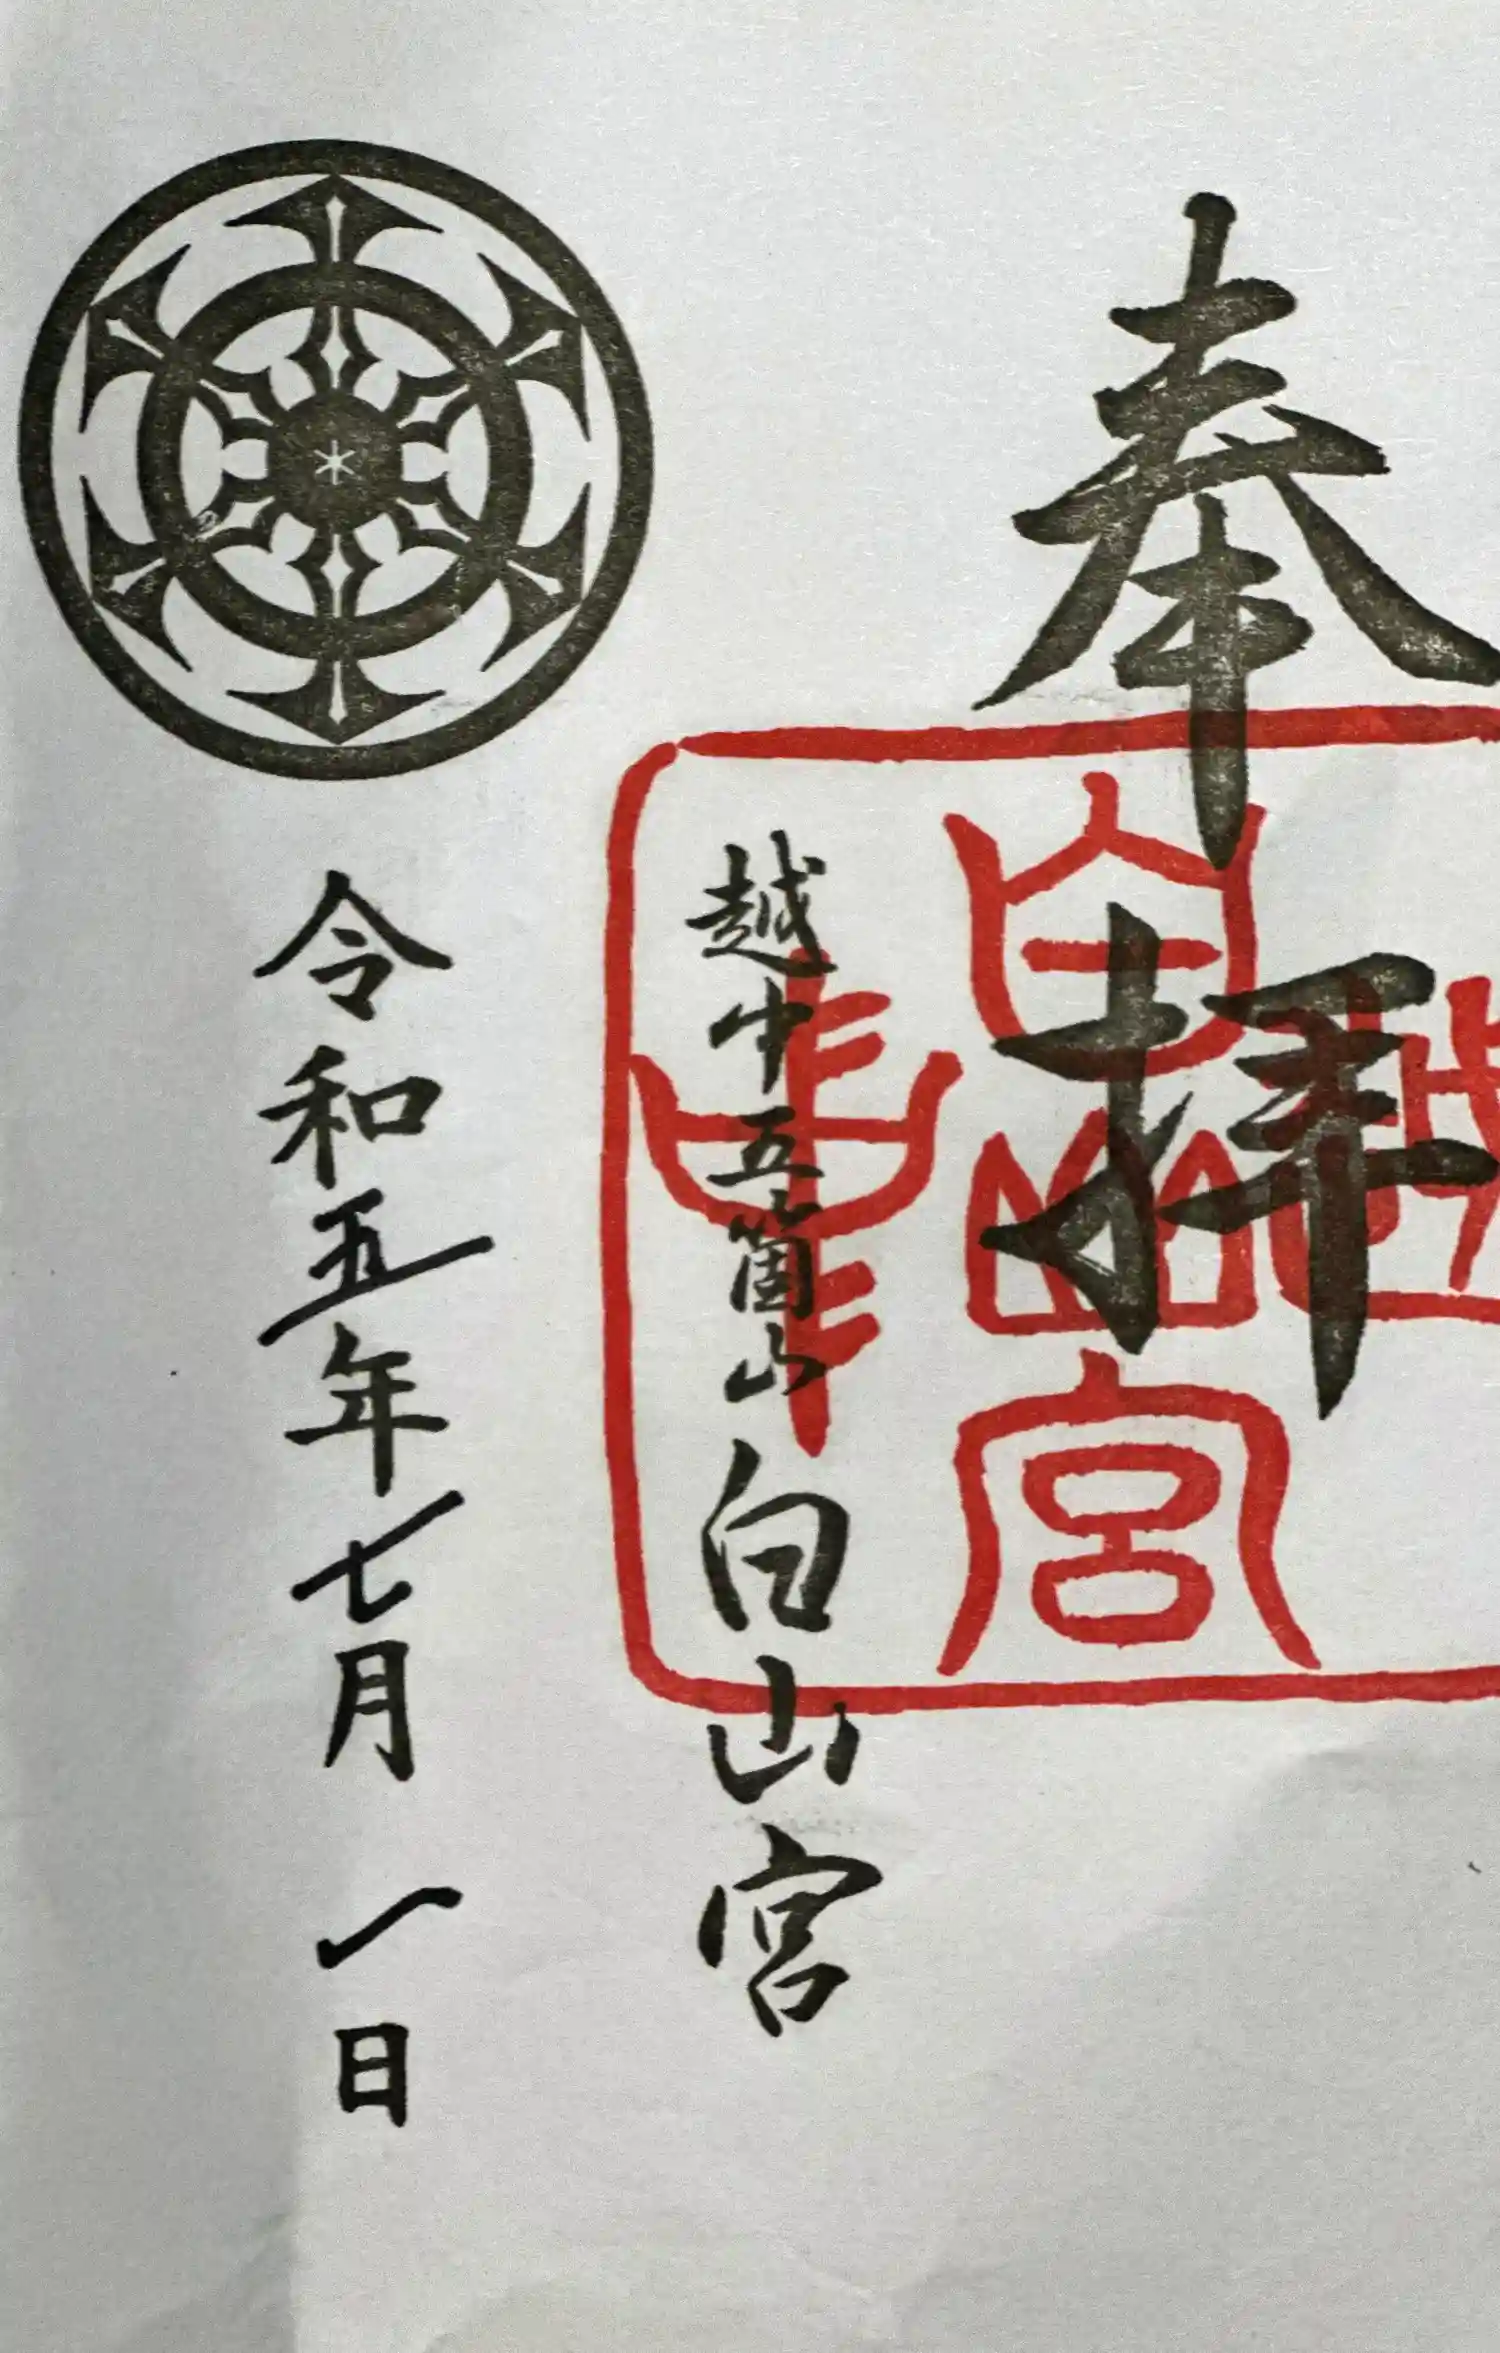 奉拝
越中五箇山白山宮
令和五年七月一日
越
白山宮
中